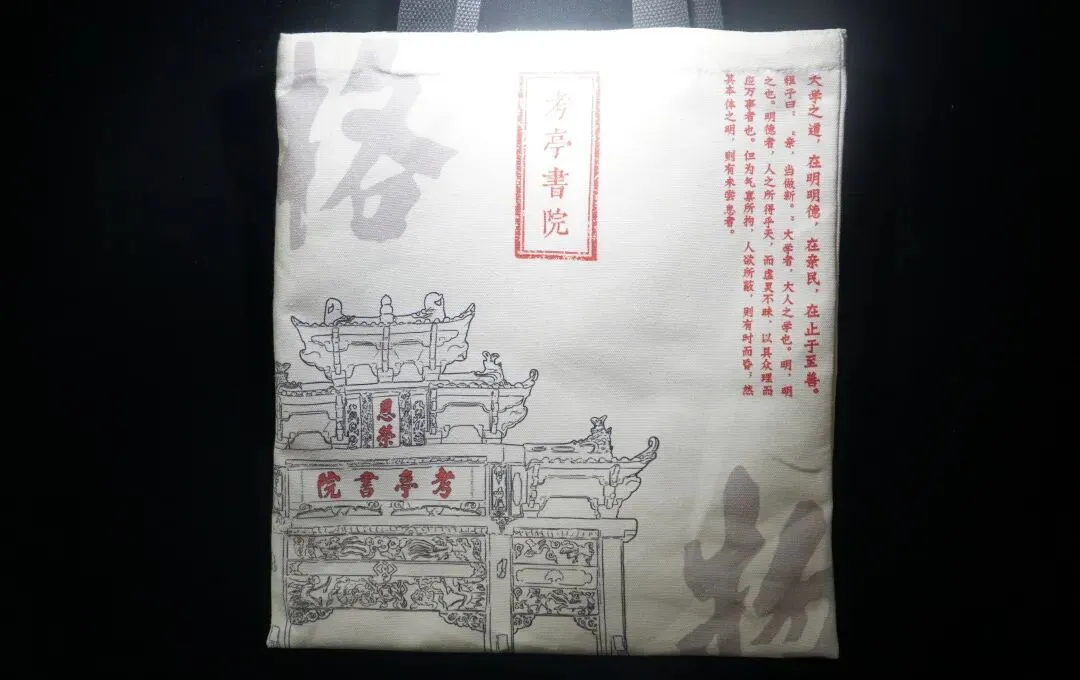 大学之道，在明明德，在亲民，在止于至善。
程子曰："亲，当做新。"大学者，大人之学也。明，明
之也。明德者，人之所得乎天，而虚灵不昧，以具众理而
应万事者也。但为气禀所拘，人欲所蔽，则有时而昏，然
其本体之明，则有未尝息者。
考亭書院
格
恩榮
考亭書院
物